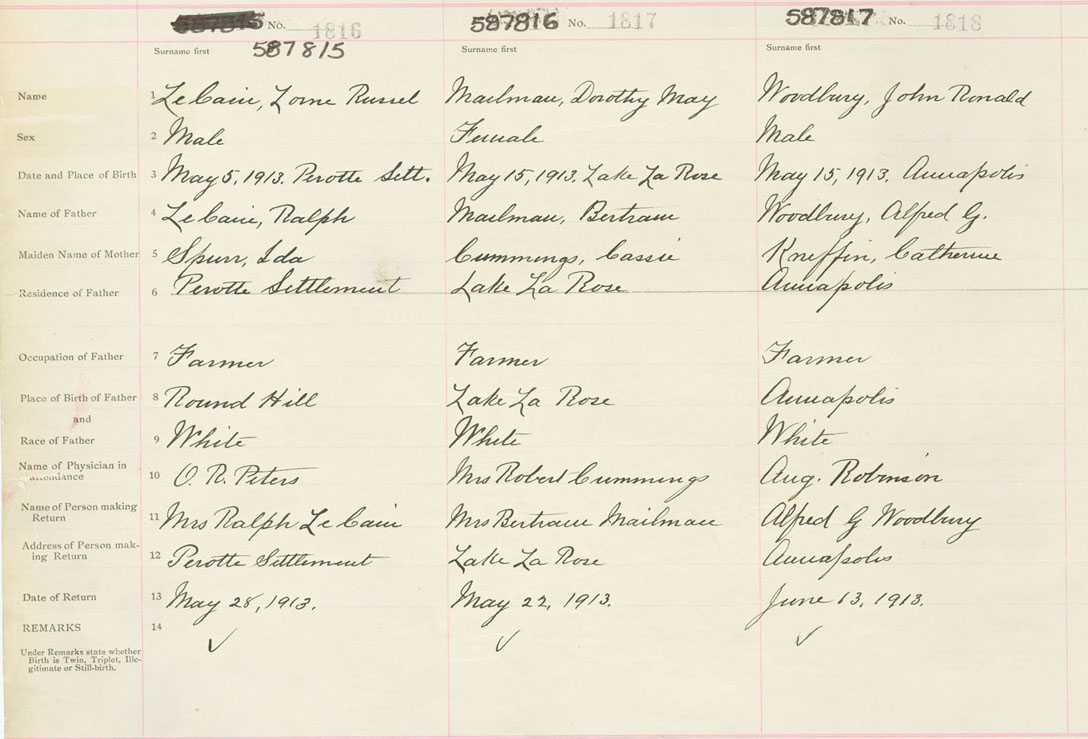 587815 No. 1816 587816 No. 1817 587817 No. 1818
Surname first 587815 Surname first Surname first
Name 1 LeCain, Lorne Russel Mailman, Dorothy May Woodbury, John Ronald
Sex 2 Male Female Male
Date and Place of Birth 3 May 5, 1913. Perotte Sett. May 15, 1913. Lake La Rose May 15, 1913. Annapolis
Name of Father 4 LeCain, Ralph Mailman, Bertram Woodbury, Alfred G.
Maiden Name of Mother 5 Spurr, Ida Cummings, Cassie Kneffin, Catherine
Residence of Father 6 Perotte Settlement Lake La Rose Annapolis
Occupation of Father 7 Farmer Farmer Farmer
Place of Birth of Father 8 Round Hill Lake La Rose Annapolis
and
Race of Father 9 White White White
Name of Physician in
attendance 10 O. R. Peters Mrs Robert Cummings Aug. Robinson
Name of Person making
Return 11 Mrs Ralph LeCain Mrs Bertram Mailman Alfred G Woodbury
Address of Person mak-
ing Return 12 Perotte Settlement Lake La Rose Annapolis
Date of Return 13 May 28, 1913. May 22, 1913. June 13, 1913.
REMARKS 14 ✓ ✓ ✓
Under Remarks state whether
Birth is Twin, Triplet, Ille-
gitimate or Still-birth.